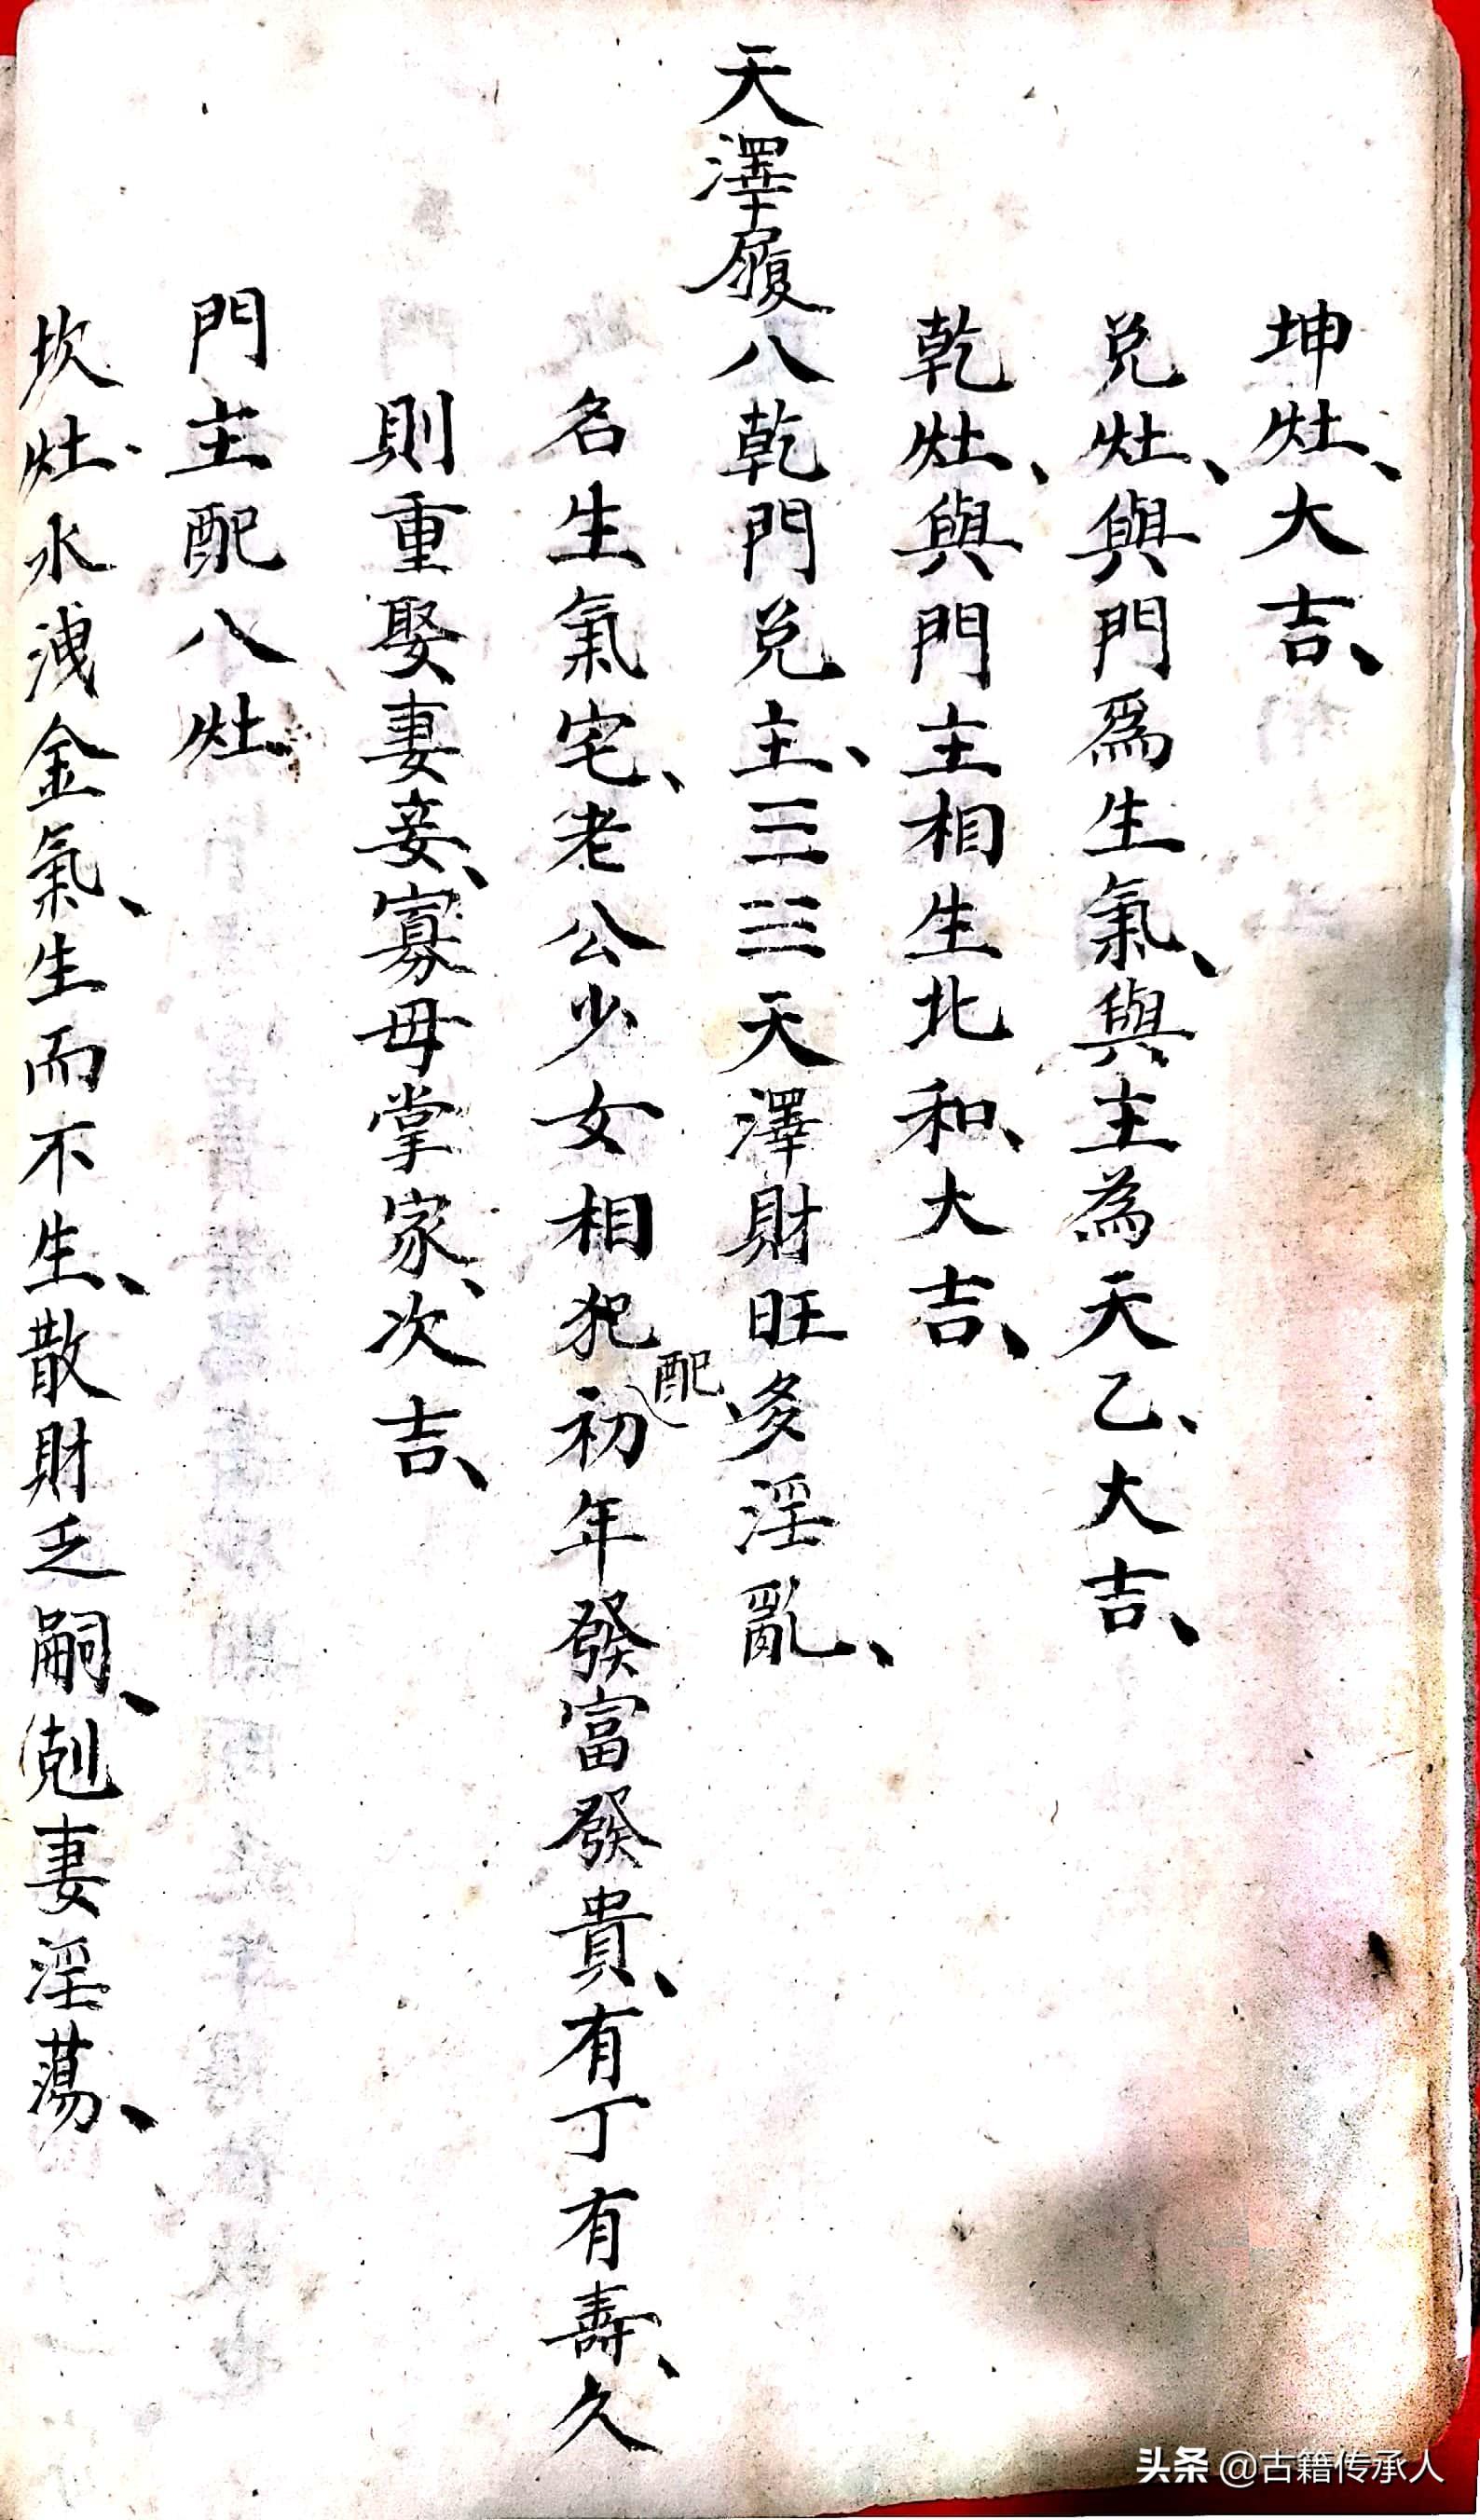 坤灶、大吉、
兑灶、與門爲生氣、與主為天乙、大吉、
乾灶、與門主相生北和、大吉、
天澤履八乾門兑主、☰☱天澤財旺、多淫亂、
名生氣宅、老公少女相犯配初年發富發貴、有丁有壽、久
則重娶妻妾、寡母掌家、次吉、
門主配八灶
坎灶、水洩金氣、生而不生、散財乏嗣、剋妻淫蕩、
头条 @古籍传承人